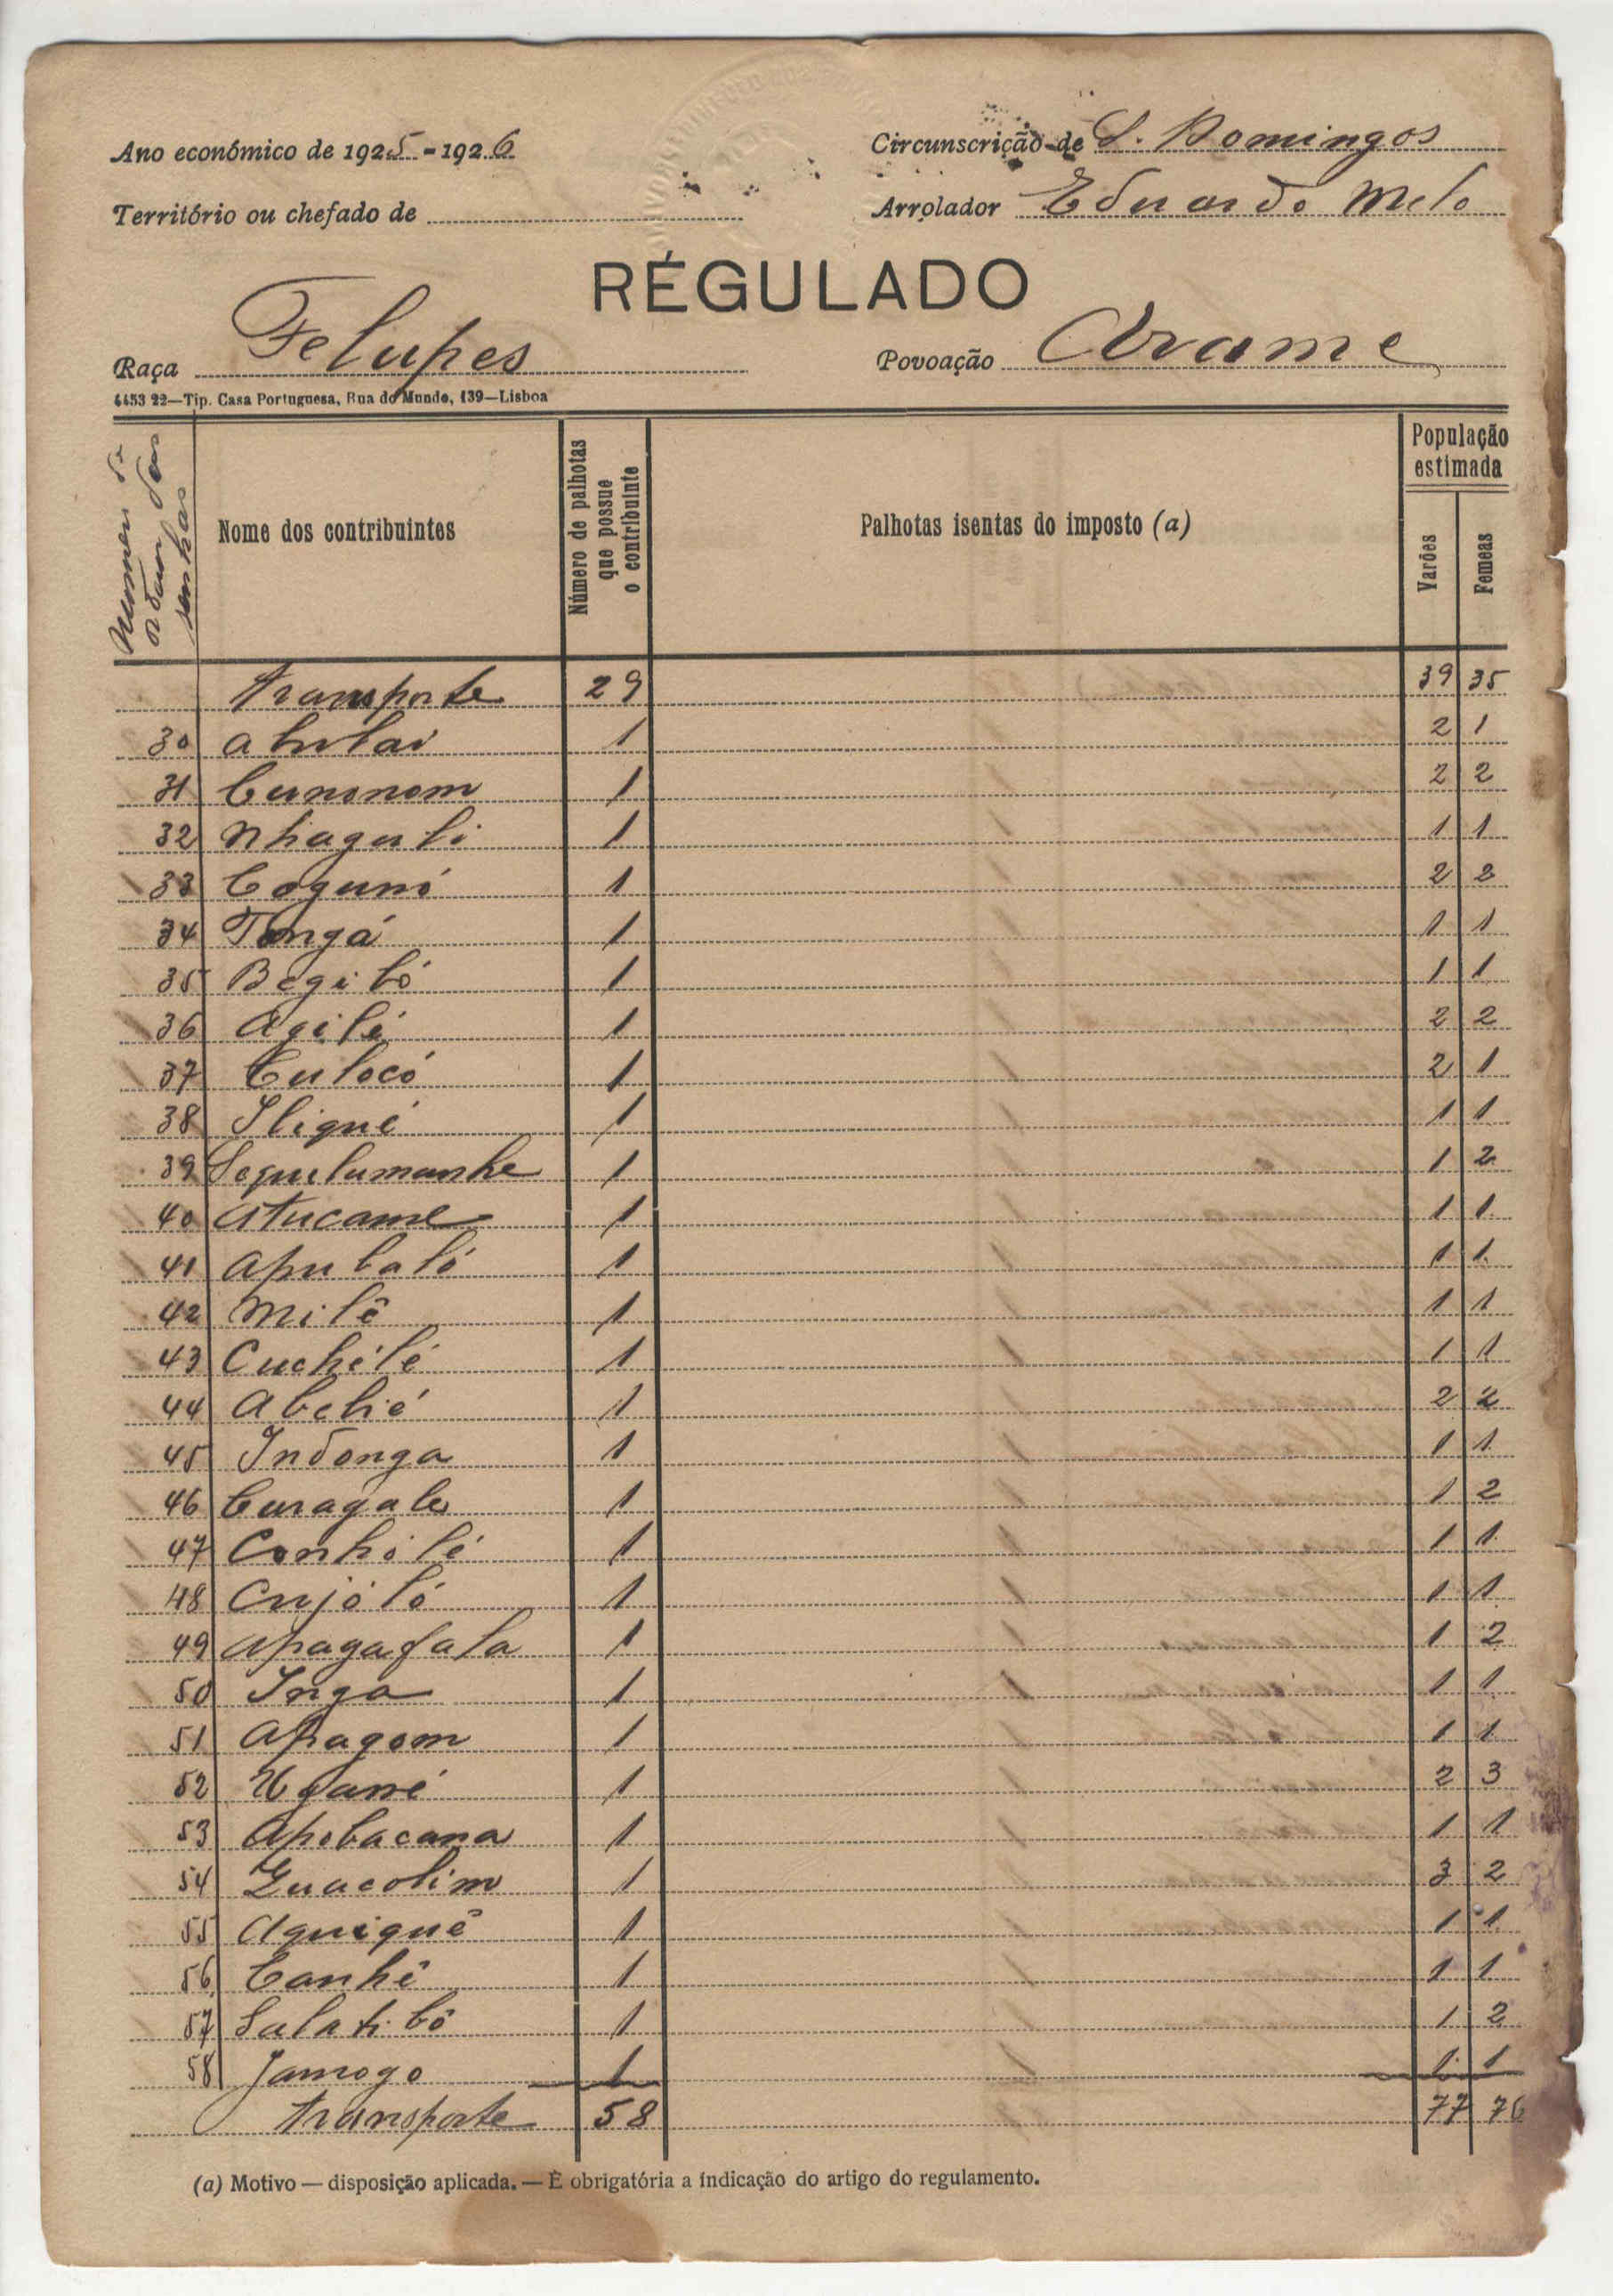 Ano económico de 1925-1926
Circunscrição de S. Domingos
Território ou chefado de
Arrolador Eduardo Melo
RÉGULADO
Raça Felupes
Povoação Arame
4453 22—Tip. Casa Portuguesa, Rua do Mundo, 139—Lisboa
Nome dos contribuintes
Número de palhotas que possue o contribuinte
Palhotas isentas do imposto (a)
População estimada
Varões Femeas
Transporte 29 39 35
30 1 2 1
31 Cunonom 1 2 2
32 Nhaguli 1 1 1
33 Cogunó 1 2 2
34 Tongá 1 1 1
35 Begibó 1 1 1
36 Agilé 1 2 2
37 Culocó 1 2 1
38 Iligué 1 1 1
39 Sequelumanhe 1 1 2
40 Atucame 1 1 1
41 Apubaló 1 1 1
42 Milê 1 1 1
43 Cuchélé 1 1 1
44 Abelié 1 2 2
45 Indonga 1 1 1
46 1 1 2
47 Conhilé 1 1 1
48 Cujóló 1 1 1
49 Apagafala 1 1 2
50 Inga 1 1 1
51 Apagom 1 1 1
52 1 2 3
53 Apobacana 1 1 1
54 Guacolim 1 3 2
55 Aguiguê 1 1 1
56 Canhê 1 1 1
57 Salatibô 1 1 2
58 Jamogo 1 1 1
Transporte 58 77 76
(a) Motivo — disposição aplicada. — É obrigatória a indicação do artigo do regulamento.